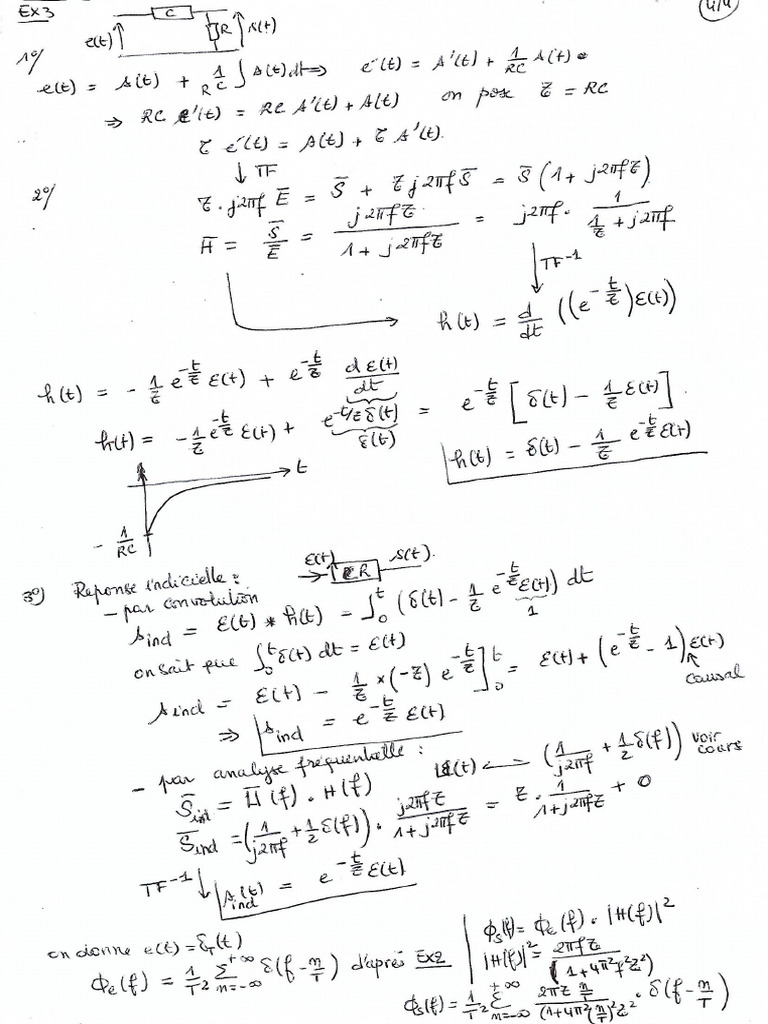 4/4
Ex3
C
e(t) R s(t)
1°/
e(t) = s(t) + 1/RC ∫ s(t)dt ⇒ e'(t) = s'(t) + 1/RC s(t)
⇒ RC e'(t) = RC s'(t) + s(t) on pose τ = RC
τ e'(t) = s(t) + τ s'(t).
↓ TF
2°/
τ. j2πf E̅ = S̅ + τ j2πf S̅ = S̅ (1 + j2πfτ)
H̅ = S̅/E̅ = j2πfτ / (1 + j2πfτ) = j2πf . 1 / (1/τ + j2πf)
↓ TF⁻¹
h(t) = d/dt ((e^(-t/τ)) ε(t))
h(t) = - 1/τ e^(-t/τ) ε(t) + e^(-t/τ) dε(t)/dt
h(t) = - 1/τ e^(-t/τ) ε(t) + e^(-t/τ) δ(t) = e^(-t/τ) [δ(t) - 1/τ ε(t)]
δ(t)
h(t) = δ(t) - 1/τ e^(-t/τ) ε(t)
t
- 1/RC
3°) Reponse indicielle : ε(t) CR s(t).
- par convolution
s_ind = ε(t) * h(t) = ∫₀ᵗ (δ(t) - 1/τ e^(-t/τ) ε(t)) dt
1
on sait que ∫₀ᵗ δ(t) dt = ε(t)
s_ind = ε(t) - 1/τ × (-τ) e^(-t/τ) ]₀ᵗ = ε(t) + (e^(-t/τ) - 1) ε(t)
causal
⇒ s_ind = e^(-t/τ) ε(t)
- par analyse fréquentielle : (t) ← (1/j2πf + 1/2 δ(f)) voir cours
S̅_ind = U̅(f) . H(f)
S̅_ind = (1/j2πf + 1/2 δ(f)) . j2πfτ / (1 + j2πfτ) = τ . 1 / (1 + j2πfτ) + 0
TF⁻¹ ↓ s_ind(t) = e^(-t/τ) ε(t)
on donne e(t) = δ_T(t)
Φe(f) = 1/T² Σ_{n=-∞}^{+∞} δ(f - n/T) d'après Ex2
Φs(f) = Φe(f) . |H(f)|²
|H(f)|² = 2πfτ / (1 + 4π²f²τ²)
Φs(f) = 1/T² Σ_{n=-∞}^{+∞} 2πτ n/T / (1 + 4π²(n/T)²τ²) . δ(f - n/T)